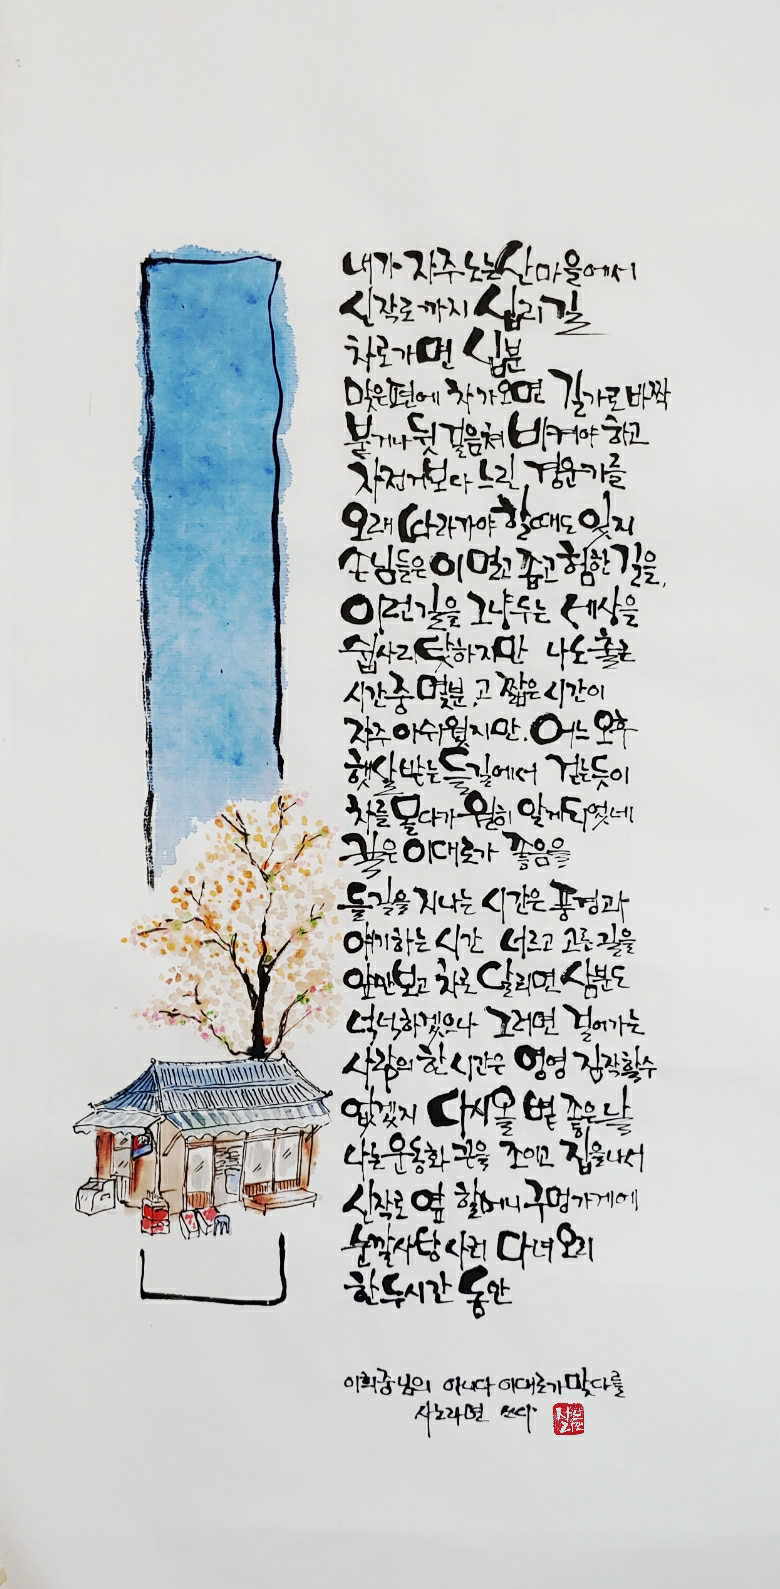 내가 자주 노는 산마을에서
신작로까지 십리 길
차로 가면 십분
맞은편에 차가 오면 길가로 바짝
붙거나 뒷걸음쳐 비켜야 하고
자전거보다 느린 경운기를
오래 따라가야 할 때도 있지
손님들은 이 멀고 좁고 험한 길을,
이런 길을 그냥 두는 세상을
쉽사리 탓하지만 나도 출근
시간 중 몇분, 그 짧은 시간이
자주 아쉬웠지만. 어느 오후
햇살 받는 들길에서 걷는 듯이
차를 몰다가 원히 알게 되었네
길은 이대로가 좋음을
들길을 지나는 시간은 풍경과
얘기하는 시간 너르고 고른 길을
앞만 보고 차로 달리면 삼분도
넉넉하겠으나 그러면 걸어가는
사람의 한 시간은 영영 짐작할 수
없겠지 다시 올 볕 좋은 날
나는 운동화 끈을 조이고 집을 나서
신작로 옆 할머니 구멍가게에
눈깔사탕 사러 다녀오리
한두시간 동안
이희중님의 아니다 이대로가 맞다를
사노라면 쓰다